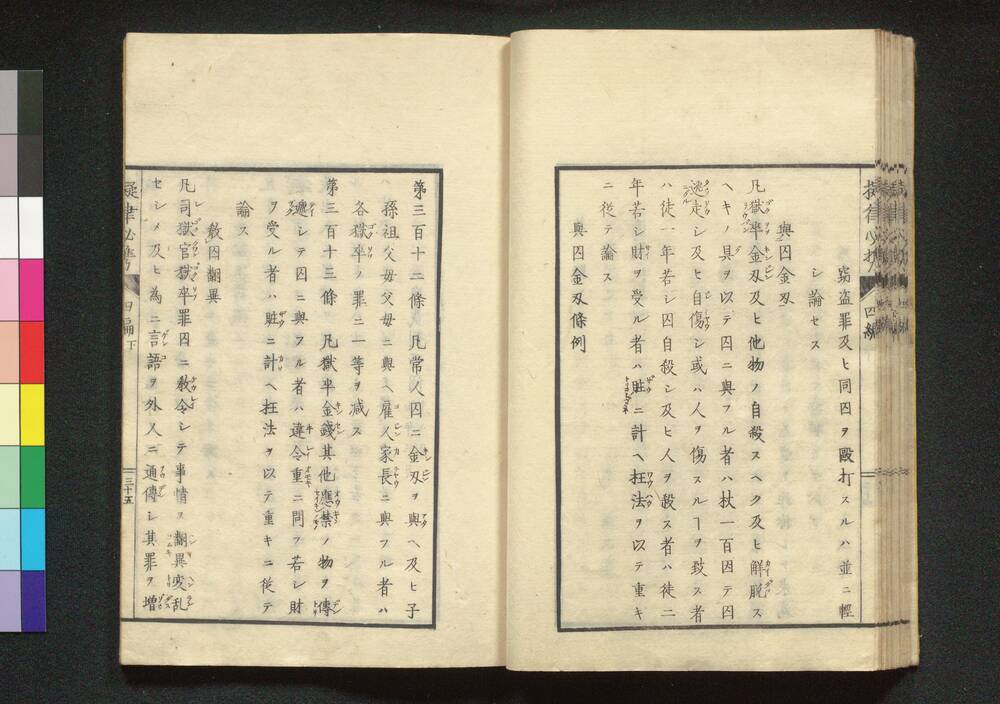 竊盗罪及ヒ同囚ヲ毆打スルハ並ニ輕
シ論セス
與囚金刃
凡獄卒金刃及ヒ他物ノ自殺スヘク及ヒ解脱ス
ヘキノ具ヲ以テ囚ニ與フル者ハ杖一百因テ囚
逃走シ及ヒ自傷シ或ハ人ヲ傷スルヿヲ致ス者
ハ徒一年若シ囚自殺シ及ヒ人ヲ殺ス者ハ徒二
年若シ財ヲ受ル者ハ贓ニ計ヘ枉法ヲ以テ重キ
ニ從テ論ス
與囚金刃條例
第三百十二條 凡常人囚ニ金刃ヲ與ヘ及ヒ子
孫祖父母父母ニ與ヘ雇人家長ニ與フル者ハ
各獄卒ノ罪ニ一等ヲ減ス
第三百十三條 凡獄卒金錢其他應禁ノ物ヲ傳
遞シテ囚ニ與フル者ハ違令重ニ問フ若シ財
ヲ受ル者ハ贓ニ計ヘ枉法ヲ以テ重キニ從テ
論ス
敎囚翻異
凡司獄官獄卒罪囚ニ敎令シテ事情ヲ翻異変乱
セシメ及ヒ為ニ言語ヲ外人ニ通傳シ其罪ヲ增
四編下
三十五